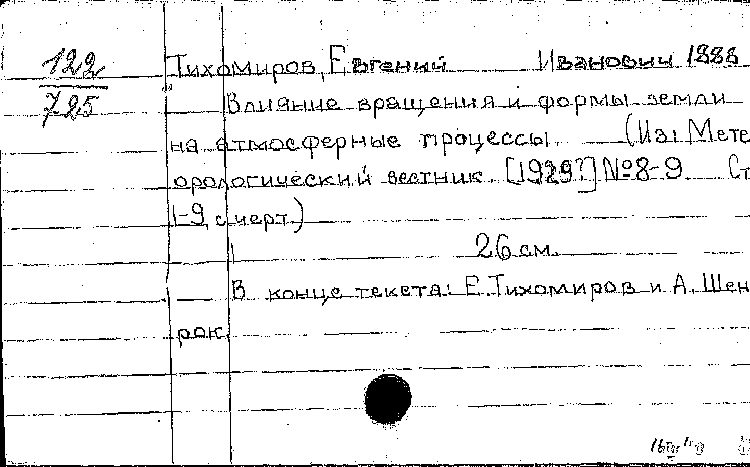 122
725
Тихомиров, Евгений Иванович 1888
Влияние вращения и формы земли
на атмосферные процессы. (Из: Мете
орологический вестник. [1929?] №8-9 Ст
1-9, с черт.)
26 см.
В конце текста: Е. Тихомиров и А. Шен
рок.